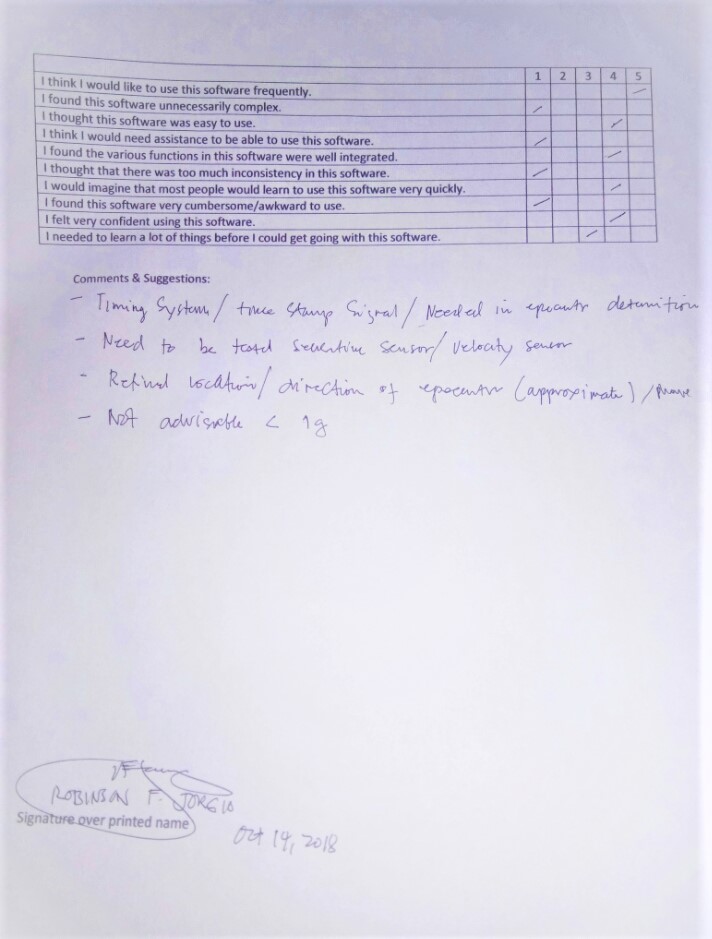 1 2 3 4 5
I think I would like to use this software frequently.
I found this software unnecessarily complex.
I thought this software was easy to use.
I think I would need assistance to be able to use this software.
I found the various functions in this software were well integrated.
I thought that there was too much inconsistency in this software.
I would imagine that most people would learn to use this software very quickly.
I found this software very cumbersome/awkward to use.
I felt very confident using this software.
I needed to learn a lot of things before I could get going with this software.
Comments & Suggestions:
- Timing System / time stamp signal / Needed in
- Need to be sensor / velocity sensor
- location / direction of (approximate) /
- Not advisable < 1g
ROBINSON F.
Signature over printed name
Oct 19, 2018